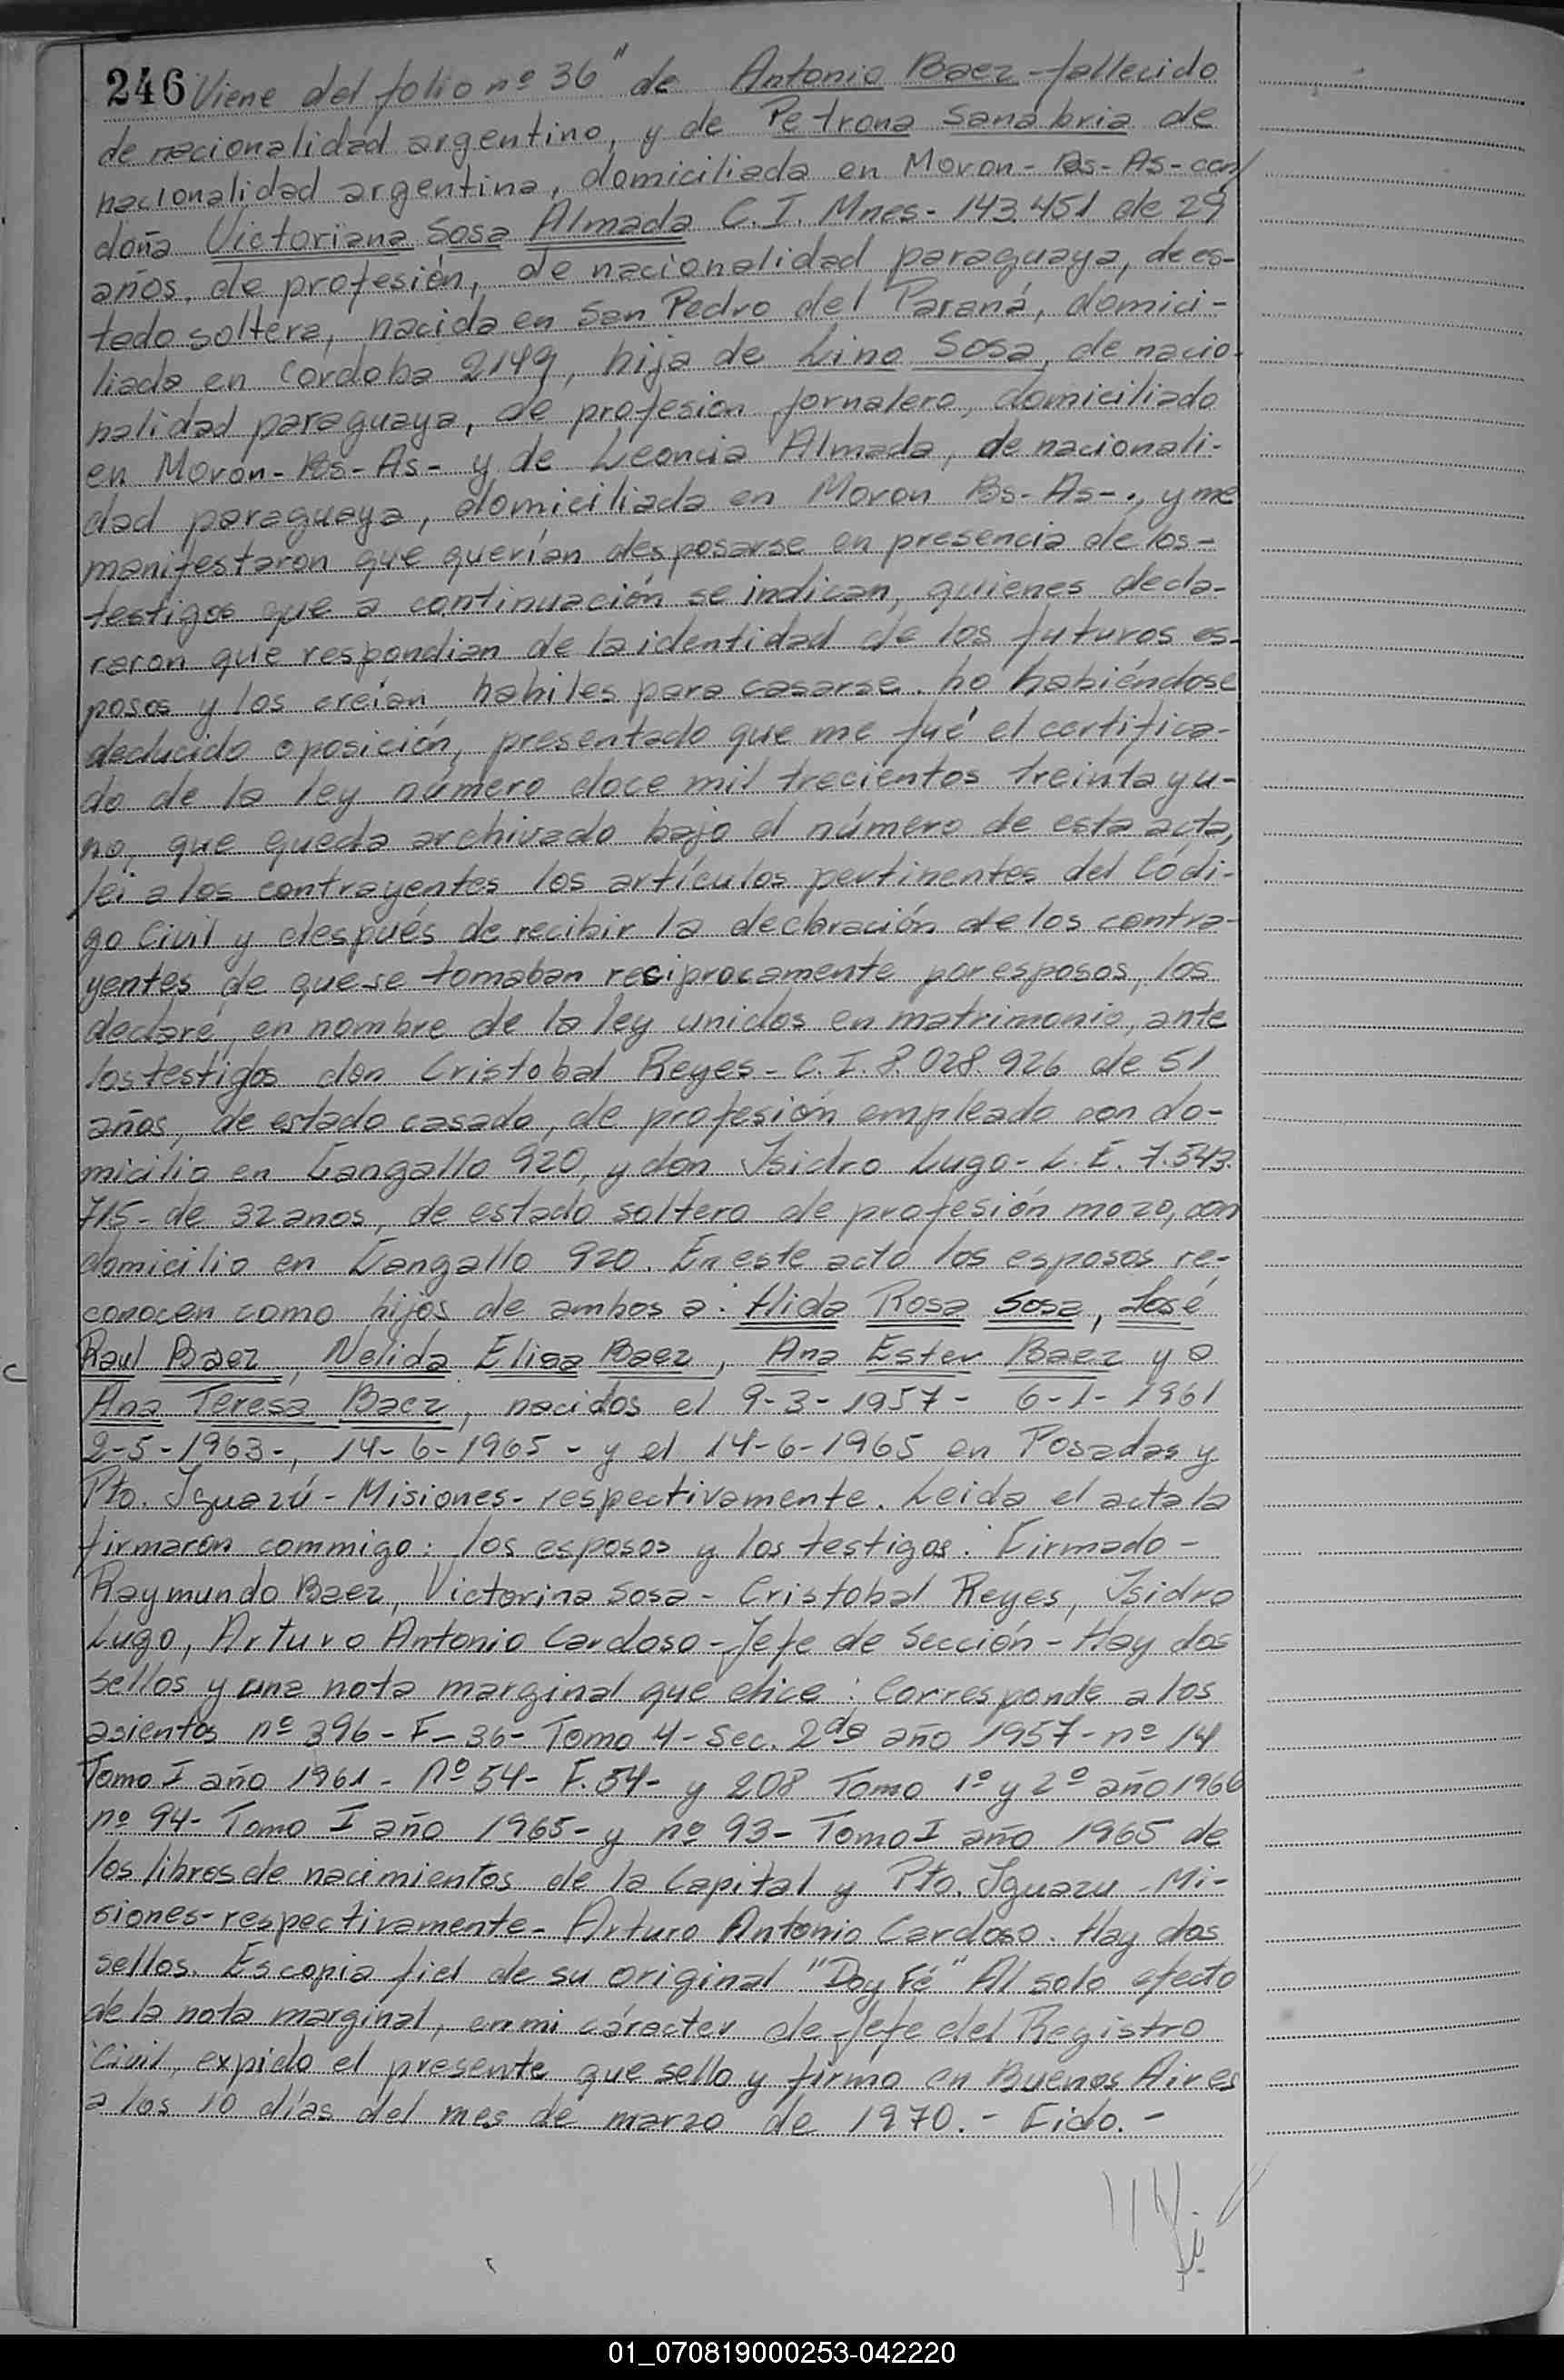 246 Viene del folio nº 36" de Antonio Baez - fallecido
de nacionalidad argentino, y de Petrona Sanabria de
nacionalidad argentina, domiciliada en Moron - Bs - As - con
doña Victoriana Sosa Almada C. I. Mnes - 143.451 de 29
años, de profesión, de nacionalidad paraguaya, de es-
tado soltera, nacida en San Pedro del Paraná, domici-
liada en Cordoba 2149, hija de Lino Sosa, de nacio-
nalidad paraguaya, de profesion jornalero, domiciliado
en Moron - Bs - As - y de Leoncia Almada, de nacionali-
dad paraguaya, domiciliada en Moron Bs - As -., y me
manifestaron que querían desposarse en presencia de los -
testigos que a continuación se indican, quienes decla-
raron que respondian de la identidad de los futuros es-
posos y los creían habiles para casarse. no habiéndose
deducido oposición, presentado que me fué el certifica-
do de la ley número doce mil trecientos treinta y u-
no, que queda archivado bajo el número de esta acta,
lei a los contrayentes los artículos pertinentes del Códi-
go Civil y después de recibir la declaración de los contra-
yentes de que se tomaban reciprocamente por esposos, los
declaré, en nombre de la ley unidos en matrimonio, ante
los testigos don Cristobal Reyes - C. I. 8.028.926 de 51
años, de estado casado, de profesión empleado con do-
micilio en Cangallo 920, y don Isidro Lugo - L. E. 7.543.
715 - de 32 anos, de estado soltero de profesión mozo, con
domicilio en Cangallo 920. En este acto los esposos re-
conocen como hijos de ambos a: Hida Rosa Sosa, José
Raul Baez, Nelida Elisa Baez, Ana Ester Baez y a
Ana Teresa Baez, nacidos el 9-3-1957 - 6-1-1961
2-5-1963 -, 14-6-1965 - y el 14-6-1965 en Posadas y
Pto. Iguazú - Misiones - respectivamente. Leida el acta la
firmaron commigo: los esposos y los testigos. Firmado -
Raymundo Baez, Victorina Sosa - Cristobal Reyes, Isidro
Lugo, Arturo Antonio Cardoso - Jefe de Sección - Hay dos
sellos y una nota marginal que dice: Corresponde a los
asientos nº 396 - F - 36 - Tomo 4 - Sec. 2da año 1957 - nº 14
Tomo I año 1961 - Nº 54 - F. 54 - y 208 Tomo 1º y 2º año 1966
nº 94 - Tomo I año 1965 - y nº 93 - Tomo I año 1965 de
los libros de nacimientos de la Capital y Pto. Iguazu - Mi-
siones - respectivamente - Arturo Antonio Cardoso. Hay dos
sellos. Es copia fiel de su original "Doy Fé" Al solo efecto
de la nota marginal, en mi cáracter de Jefe del Registro
Civil, expido el presente que sello y firmo en Buenos Aires
a los 10 días del mes de marzo de 1970. - Fido. -
01_070819000253-042220